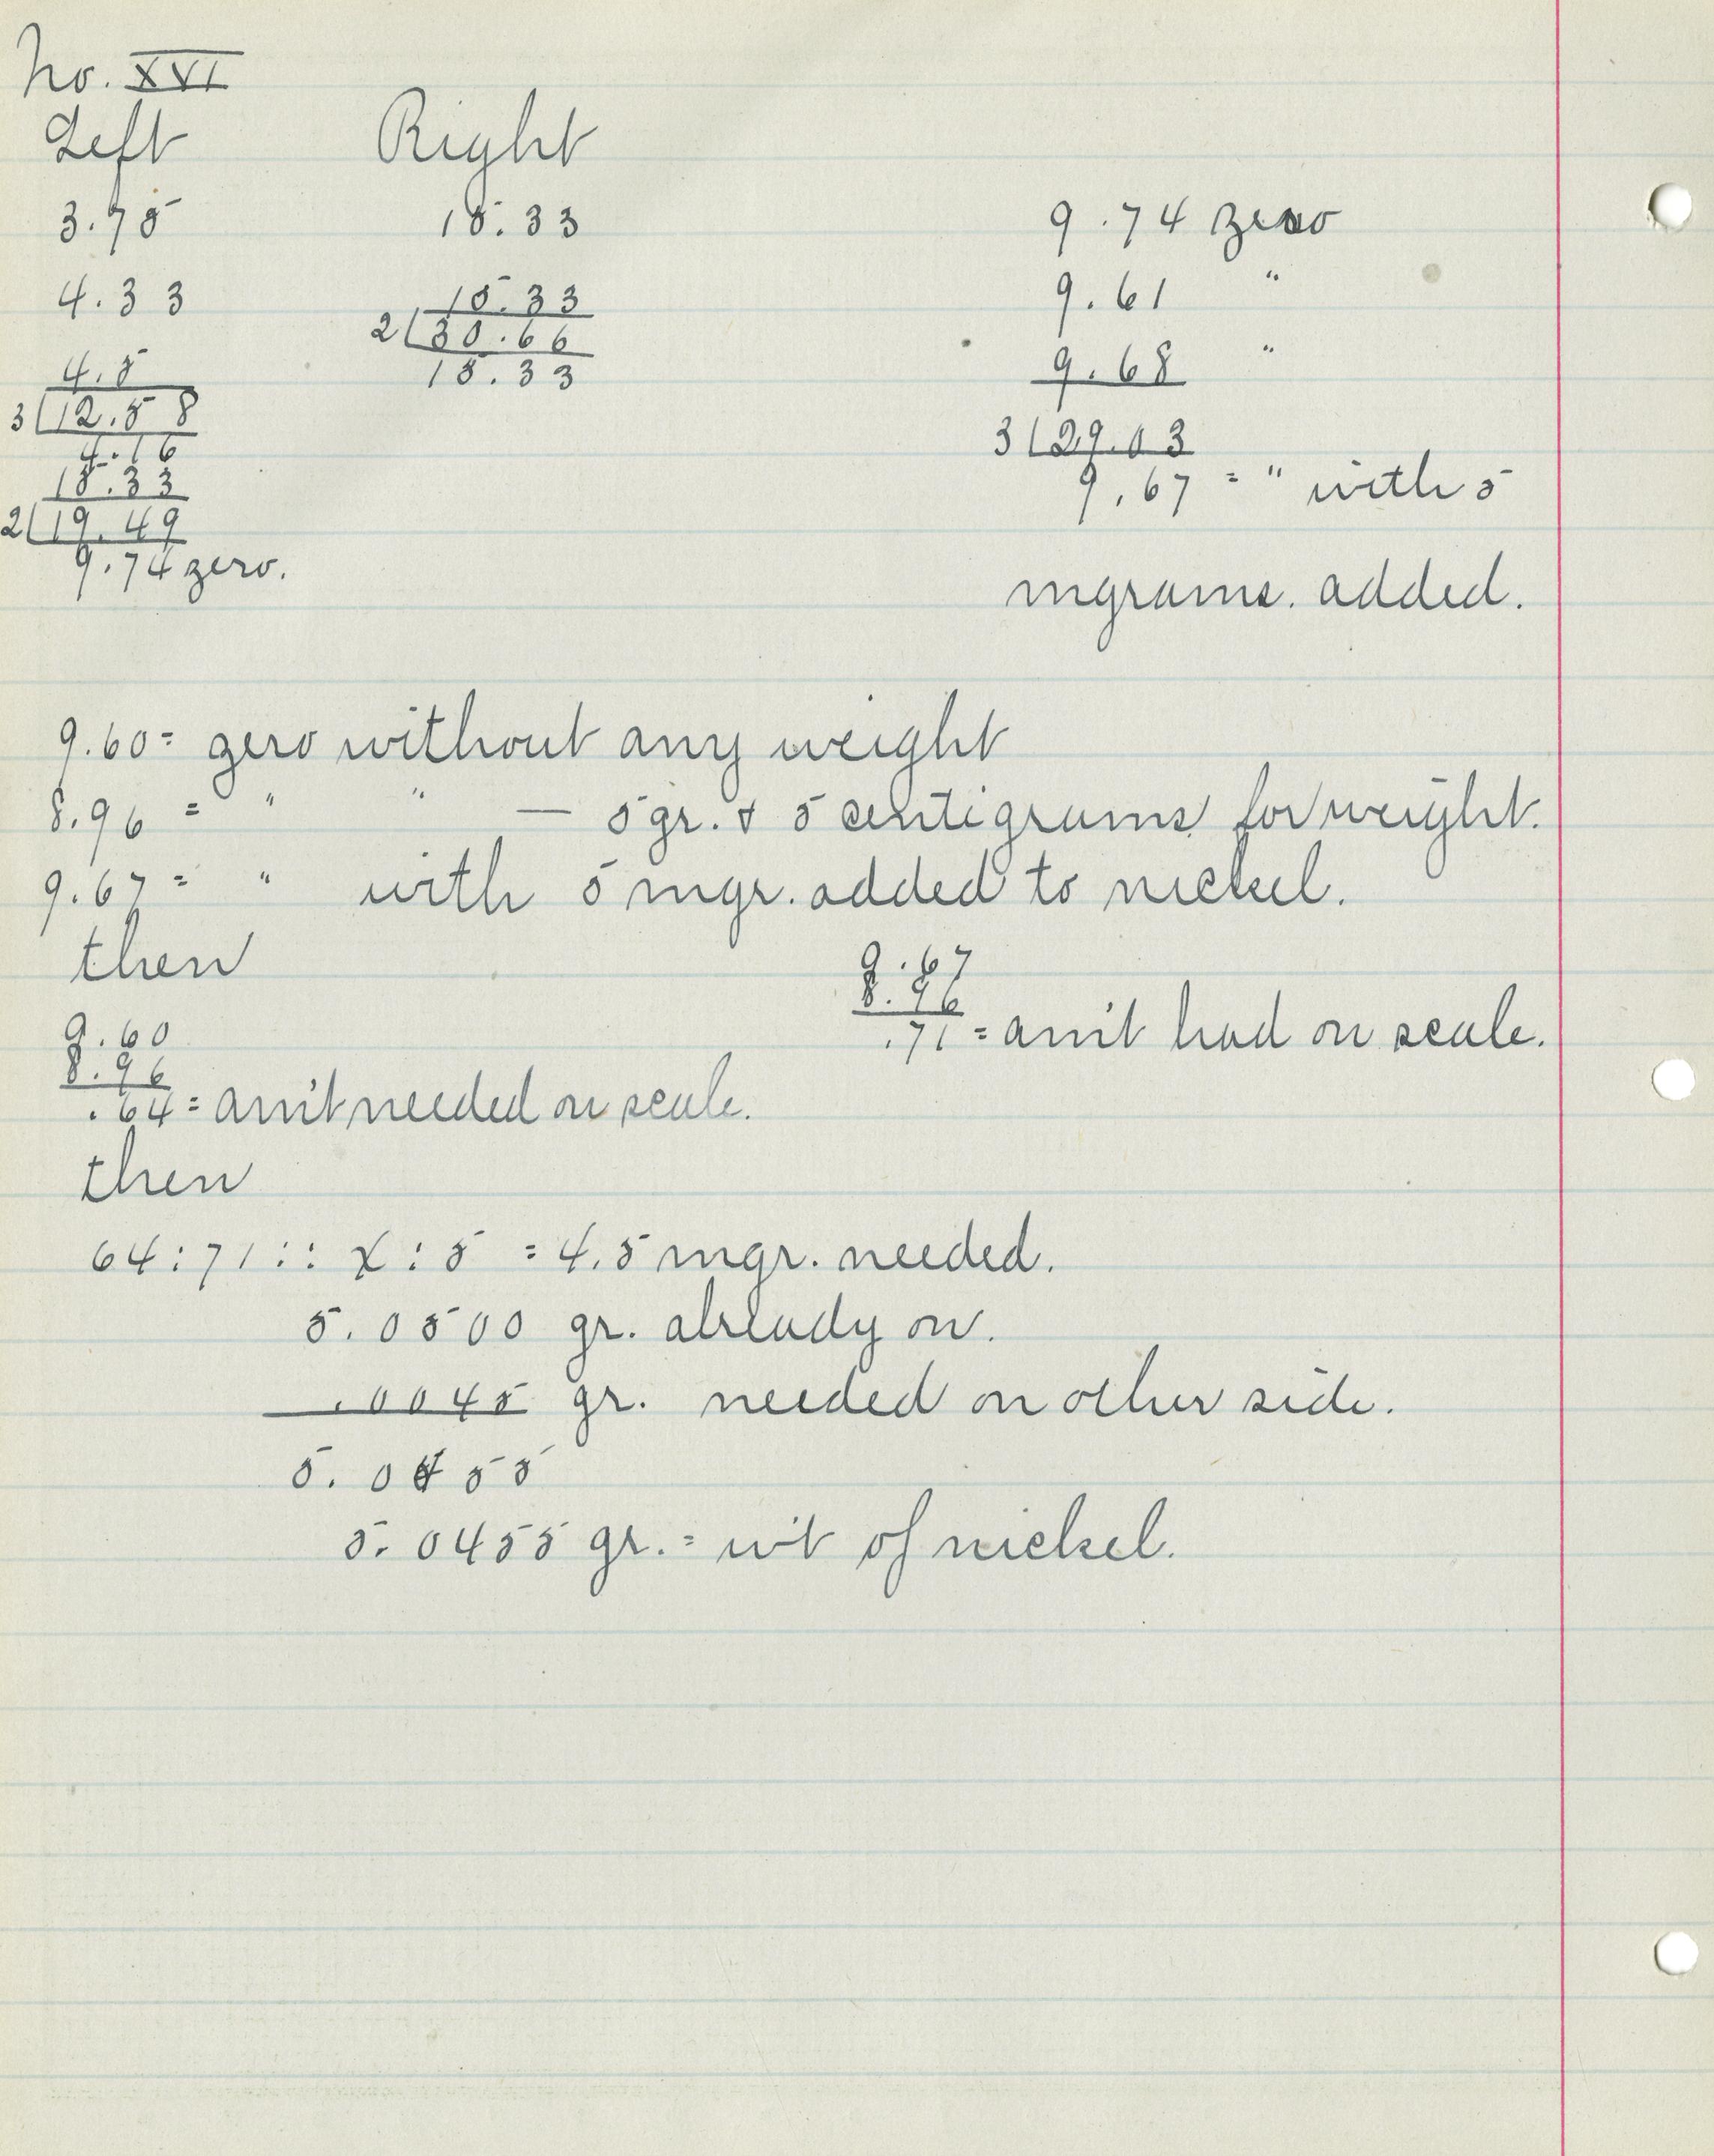 No. XVI
Left
3.75
4.33
4.5
3 12.58
4.16
15.33
2 19.49
9.74 zero.
Right
15.33
15.33
2 30.66
15.33
9.74 zero
9.61 "
9.68 "
3 29.03
9.67 = " with 5
mgrams. added.
9.60 = zero without any weight
8.96 = " " — 5 gr. & 5 centigrams for weight.
9.67 = " with 5 mgr. added to nickel.
then
9.67
8.96
.71 = am't had on scale.
9.60
8.96
.64 = am't needed on scale.
then
64 : 71 :: X : 5 = 4.5 mgr. needed.
5.0500 gr. already on.
.0045 gr. needed on other side.
5.0455
5.0455 gr. = w't of nickel.